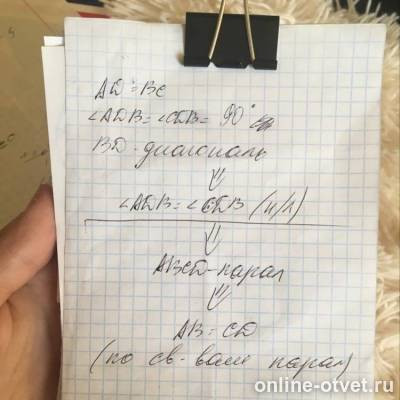 AD = BC
∠ADB = ∠CDB = 90°
BD - диагональ
⇓
∠ADB = ∠CDB (н/л)
⇓
ABCD - парал
⇓
AB = CD
(по св-вам парал)
online-otvet.ru